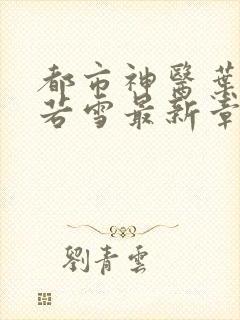 都市神醫葉
若雪最新章
劉青雲